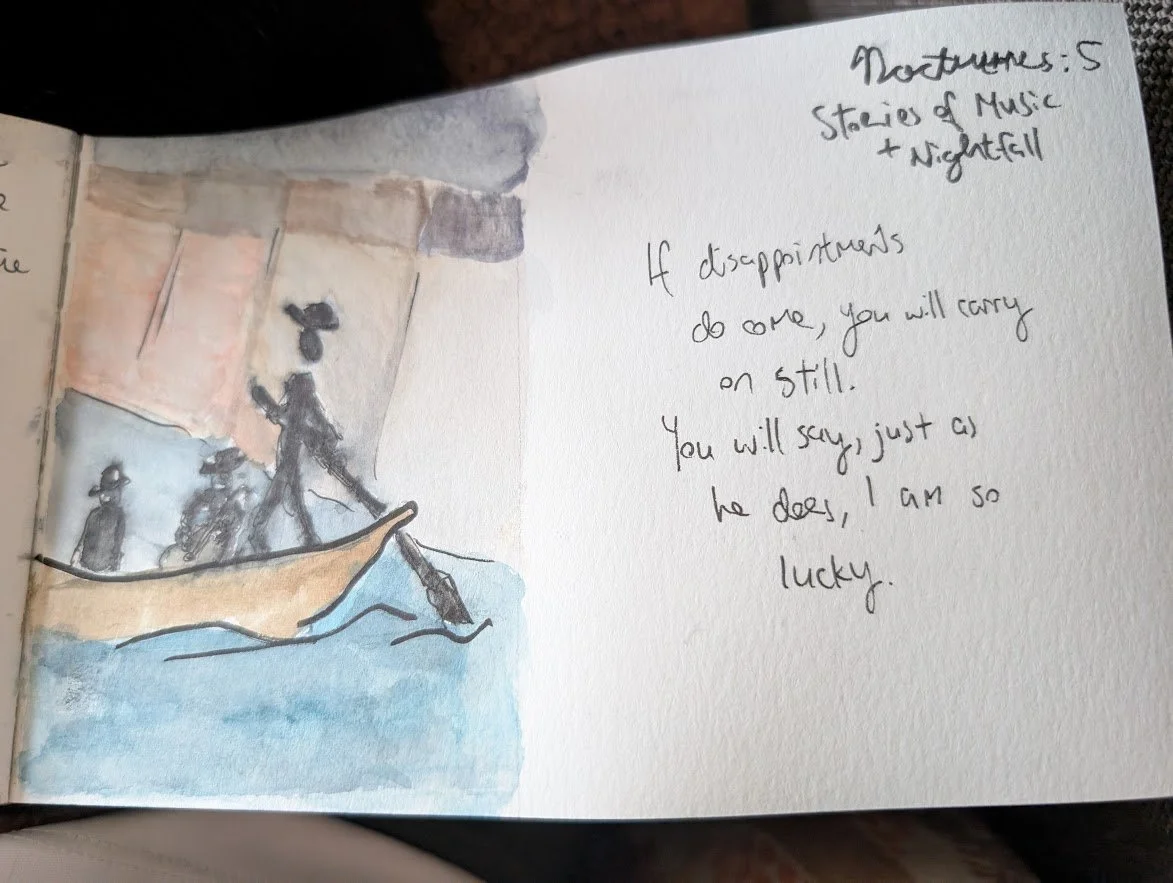 Nocturnes: 5
Stories of Music
+ Nightfall
If disappointments
do come, you will carry
on still.
You will say, just as
he does, I am so
lucky.